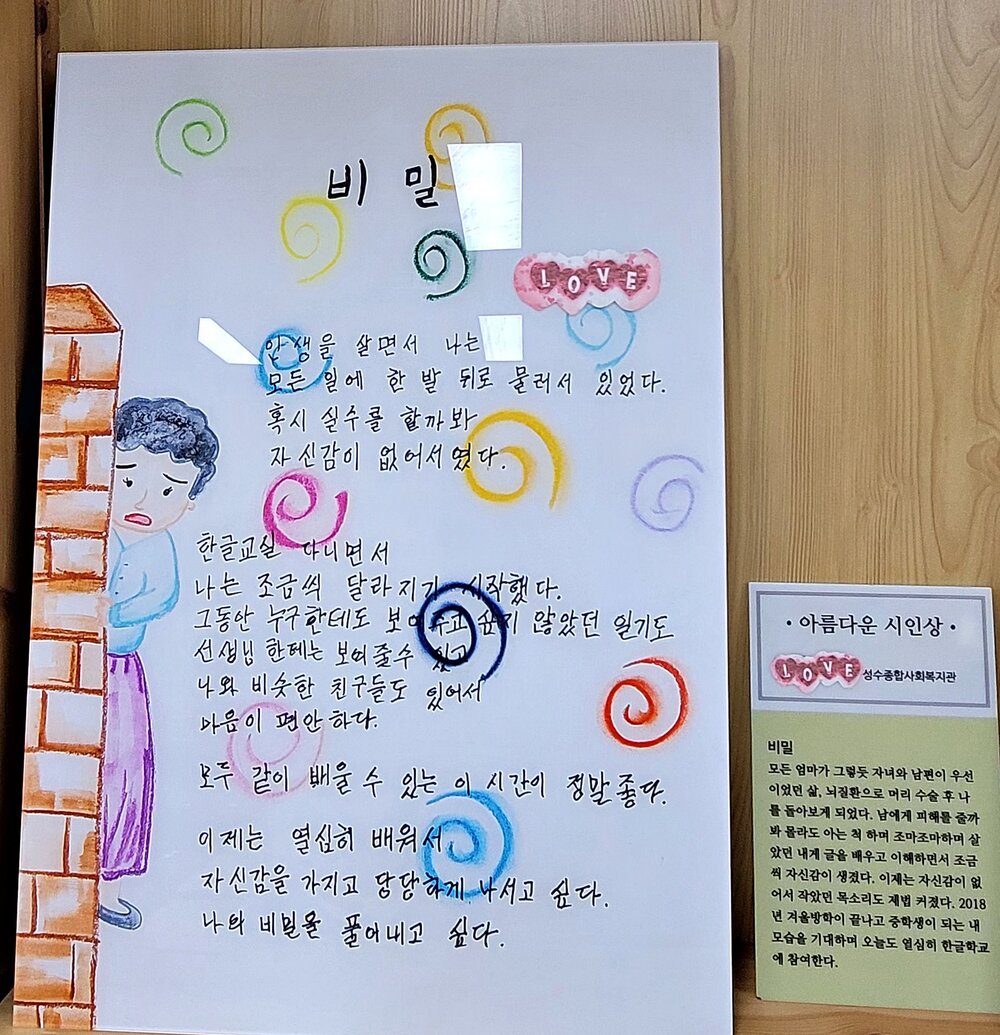 비밀
LOVE
인생을 살면서 나는
모든 일에 한 발 뒤로 물러서 있었다.
혹시 실수를 할까봐
자신감이 없어서였다.
한글교실 다니면서
나는 조금씩 달라지기 시작했다.
그동안 누구한테도 보여주고 싶지 않았던 일기도
선생님한테는 보여줄수 있고
나와 비슷한 친구들도 있어서
마음이 편안하다.
모두 같이 배울 수 있는 이 시간이 정말좋다.
이제는 열심히 배워서
자신감을 가지고 당당하게 나서고 싶다.
나의 비밀을 풀어내고 싶다.
•아름다운 시인상•
LOVE 성수종합사회복지관
비밀
모든 엄마가 그렇듯 자녀와 남편이 우선
이었던 삶, 뇌질환으로 머리 수술 후 나
를 돌아보게 되었다. 남에게 피해를 줄까
봐 몰라도 아는 척 하며 조마조마하며 살
았던 내게 글을 배우고 이해하면서 조금
씩 자신감이 생겼다. 이제는 자신감이 없
어서 작았던 목소리도 제법 커졌다. 2018
년 겨울방학이 끝나고 중학생이 되는 내
모습을 기대하며 오늘도 열심히 한글학교
에 참여한다.